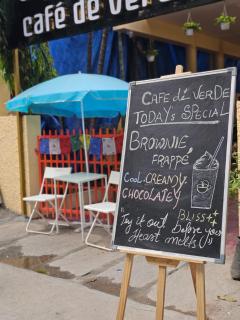 café de verde
CAFE di VERDE
TODAY's SPECIAL
BROWNIE
FRAPPÉ
Cool-CREAMY
CHOCOLATEY
BLISS
"Try it out
before your
Heart melts(!)